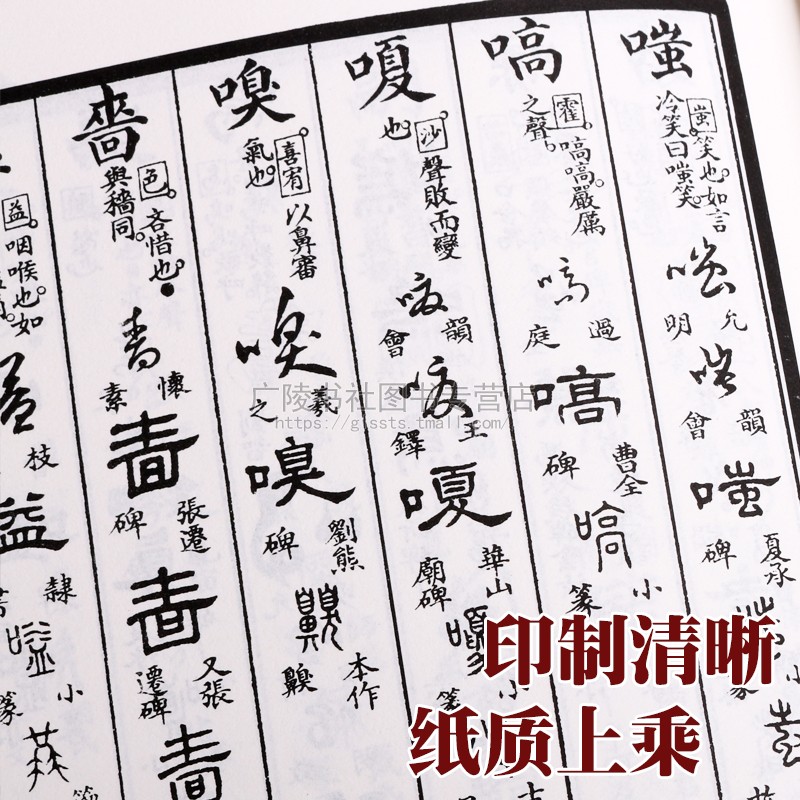 嗤
嗤笑也。如言
冷笑曰嗤笑。
嗤
允
明
嗤
韻
會
嗤
夏承
碑
小
篆
嗃
霍。嗃嗃嚴厲
之聲。
嗃
過
庭
嗃
曹全
碑
嗃
小
篆
嗄
沙 聲敗而變
也
嗄
韻
會
嗄
王
鐸
嗄
華山
廟碑
小
篆
嗅
喜宥 以鼻審
氣也。
嗅
羲
之
嗅
劉熊
碑
齅
本作
齅
嗇
色。吝惜也。
與穡同。
嗇
懷
素
嗇
張遷
碑
嗇
又張
遷碑
嗇
益。咽喉也。如
枝
隸
書
小
篆
广陵书社图书专营店
https://glssts.tmall.com/
印制清晰
纸质上乘